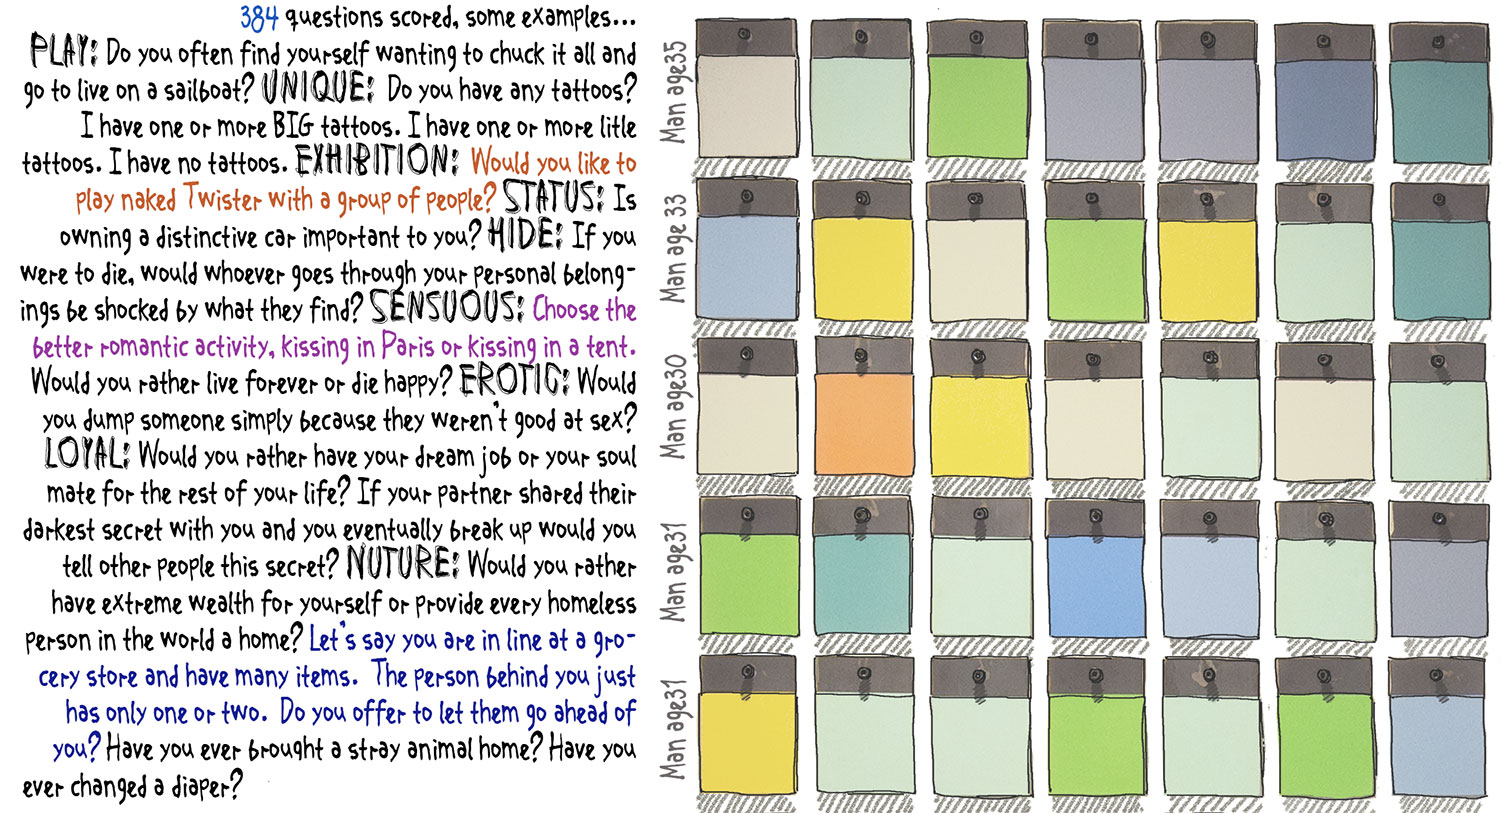 384 questions scored, some examples...
PLAY: Do you often find yourself wanting to chuck it all and
go to live on a sailboat? UNIQUE: Do you have any tattoos?
I have one or more BIG tattoos. I have one or more litle
tattoos. I have no tattoos. EXHIBITION: Would you like to
play naked Twister with a group of people? STATUS: Is
owning a distinctive car important to you? HIDE: If you
were to die, would whoever goes through your personal belong-
ings be shocked by what they find? SENSUOUS: Choose the
better romantic activity, kissing in Paris or kissing in a tent.
Would you rather live forever or die happy? EROTIC: Would
you dump someone simply because they weren't good at sex?
LOYAL: Would you rather have your dream job or your soul
mate for the rest of your life? If your partner shared their
darkest secret with you and you eventually break up would you
tell other people this secret? NUTURE: Would you rather
have extreme wealth for yourself or provide every homeless
person in the world a home? Let's say you are in line at a gro-
cery store and have many items. The person behind you just
has only one or two. Do you offer to let them go ahead of
you? Have you ever brought a stray animal home? Have you
ever changed a diaper?
Man age35
Man age 33
Man age30
Man age31
Man age31